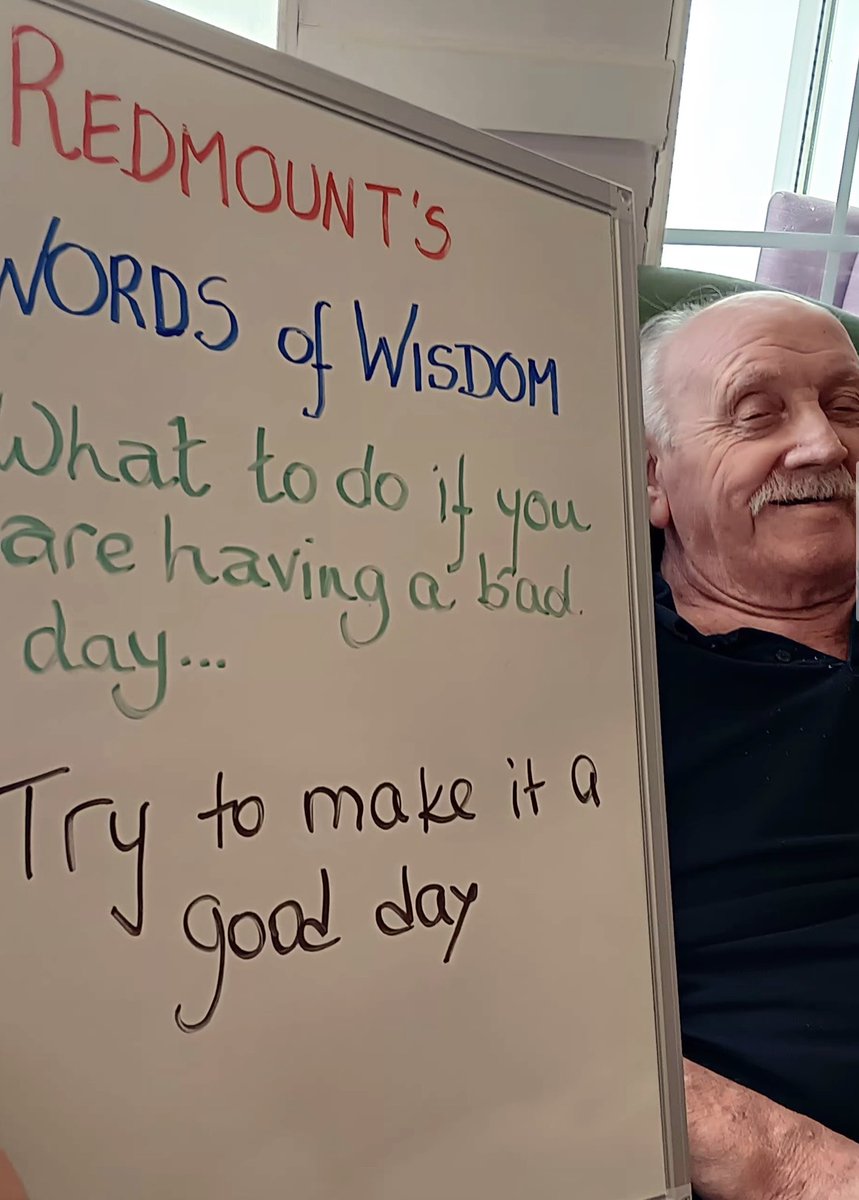 REDMOUNT'S
WORDS of WISDOM
What to do if you
are having a bad
day...
Try to make it a
good day